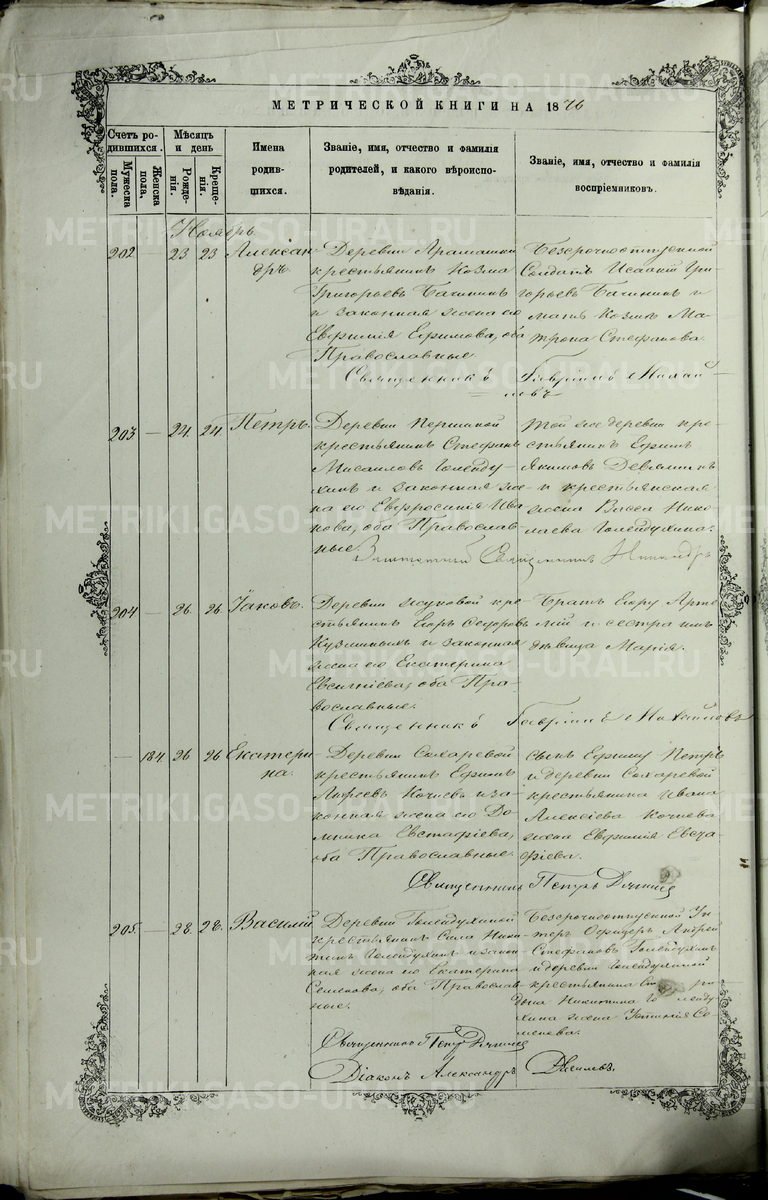 МЕТРИЧЕСКОЙ КНИГИ НА 1876
Счетъ родившихся.
Мужеска пола.
Женска пола.
Мѣсяцъ и день
Рожденія.
Крещенія.
Имена родившихся.
Званіе, имя, отчество и фамилія родителей, и какого вѣроисповѣданія.
Званіе, имя, отчество и фамилія воспріемниковъ.
Ноябрь
202 — 23 23 Александръ.
Деревни Арамашки
крестьянинъ Козма
Григорьевъ Бачининъ
и законная жена его
Евфимія Ефимова, оба
Православные.
Безсрочноотпускной
Солдатъ Исаакій Гри-
горьевъ Бачининъ и
мать Козмы Ма-
трона Стефанова.
Священникъ Гавріилъ Михай-
ловъ
203 — 24. 24. Петръ.
Деревни Першиной
крестьянинъ Стефанъ
Мисаиловъ Голенду-
хинъ и законная же-
на его Евфросинія Ива-
нова, оба Православ-
ные.
Той же деревни кре-
стьянинъ Ефимъ
Якимовъ Девяткинъ
и крестьянская
жена Васса Нико-
лаева Голендухина.
Священникъ
204 — 26. 26. Іаковъ.
Деревни Жуковой кре-
стьянинъ Егоръ Ѳедоровъ
Кузминыхъ и законная
жена его Екатерина
Евсигніева, оба Пра-
вославные.
Братъ Егору Арте-
мій и сестра имъ
дѣвица Марія.
Священникъ Гавріилъ Михайловъ
— 184 26 26 Екатери-
на.
Деревни Сохаревой
крестьянинъ Ефимъ
Кочневъ и за-
конная жена его До-
мника Евстафіева,
оба Православные.
Сынъ Ефиму Петръ
и деревни Сохаревой
крестьянина Ивана
Алексіева Кочнева
жена Евфимія Евста-
фіева.
Священникъ Петръ
205. — 28. 28. Василій
Деревни Голендухиной
крестьянинъ Сила Ники-
тинъ Голендухинъ и закон-
ная жена его Екатерина
Семенова, оба Православ-
ные.
Безсрочноотпускной Ун-
теръ Офицеръ Андрей
Стефановъ Голендухинъ
и деревни Голендухиной
крестьянина
Никитина Голенду-
хина жена Се-
менова.
Священникъ Петръ
Діаконъ Александръ